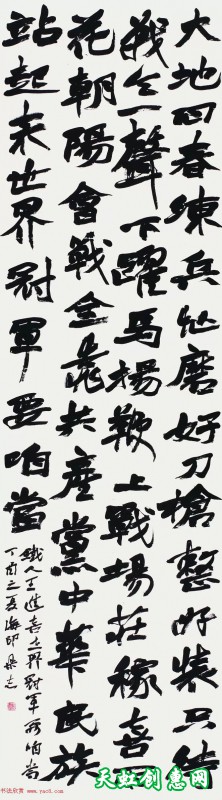 大地回春練兵忙磨好刀槍整好裝只等
戰令一聲下躍馬揚鞭上戰場莊稼喜
花朝陽會戰全靠共產黨中華民族
站起来世界冠軍要响當
鐵人王進喜世界冠軍
丁酉之夏海印
书法欣赏 www.yac8.com
天虹创惠网